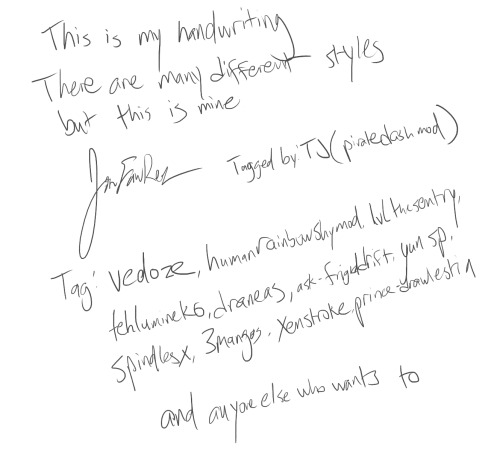 This is my handwriting
There are many different styles
but this is mine
Tagged by: TJ (piratedash mod)
Tag: vedoze, humanrainbowshymod, lvlthesentry,
tehlumineko, draneas, ask-frigiddrift, yun sp.
spindlesx, 3mangos, xenstroke, prince-drawlestia
and anyone else who wants to